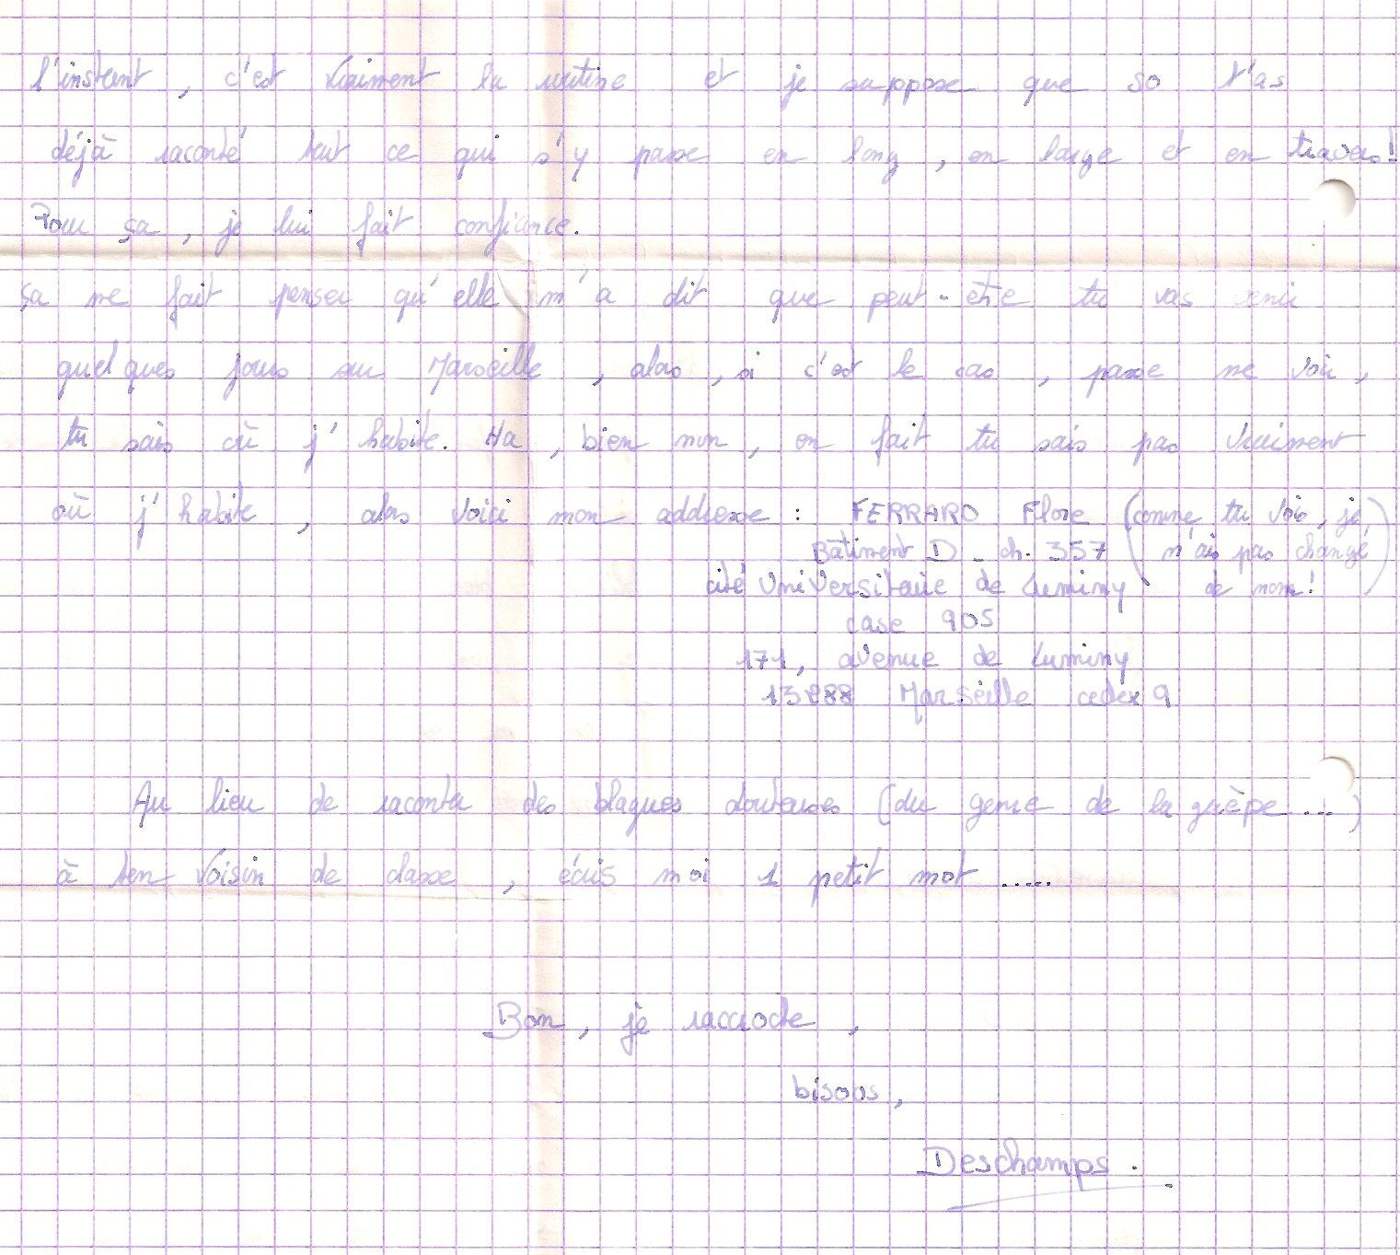 l'instant, c'est vraiment la routine et je suppose que so t'as
déjà raconté tout ce qui s'y passe en long, en large et en travers!
Pour ça, je lui fait confiance.
ça me fait penser qu'elle m'a dit que peut-être tu vas venir
quelques jours sur Marseille, alors, si c'est le cas, passe me voir,
tu sais où j'habite. Ha, bien non, en fait tu sais pas vraiment
où j'habite, alors voici mon addresse : FERRARO Flore (comme tu vois, je
Bâtiment D - ch. 357 n'ais pas changé
cité Universitaire de Luminy de nom!)
case 905
171, avenue de Luminy
13288 Marseille cedex 9
Au lieu de raconter des blagues douteuses (du genre de la guèpe ...)
à ton voisin de classe, écris moi 1 petit mot .....
Bon, je raccroche,
bisous,
Deschamps.